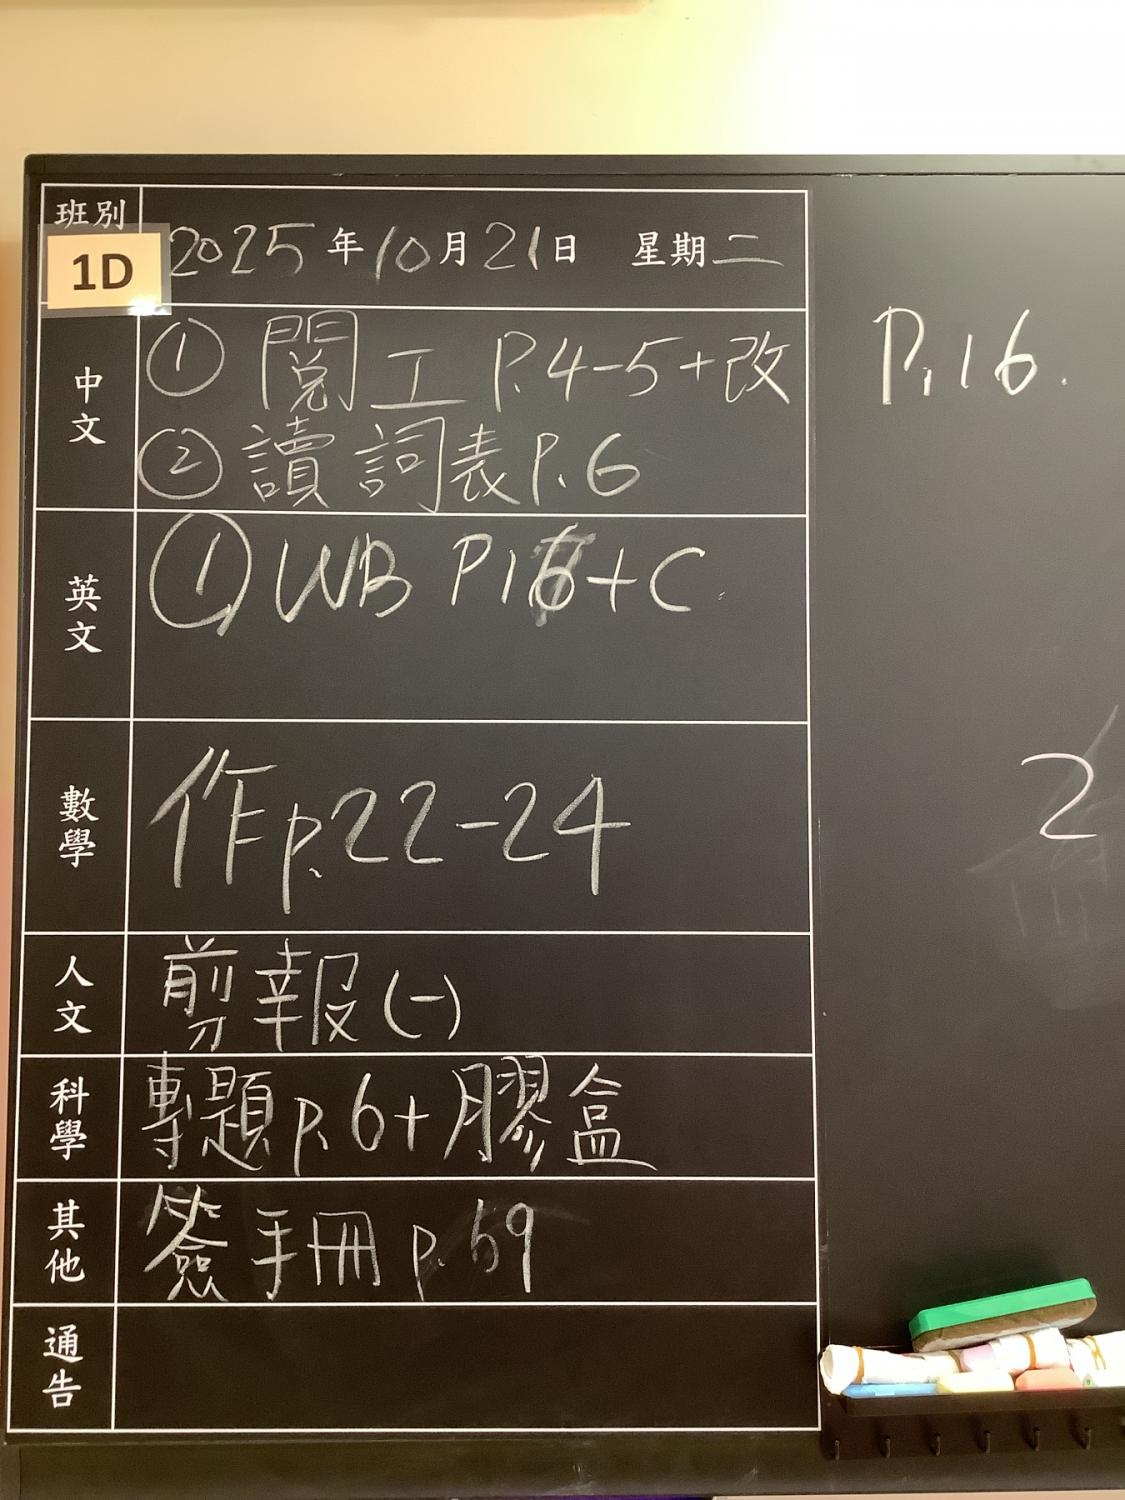 班別
1D
2025年10月21日 星期二
中文
① 閱工 P.4-5+改
② 讀詞表P.6
英文
① WB P16+C.
數學
作p.22-24
人文
剪報(一)
科學
專題p.6+膠盒
其他
簽手冊p.59
通告
P.16.
2